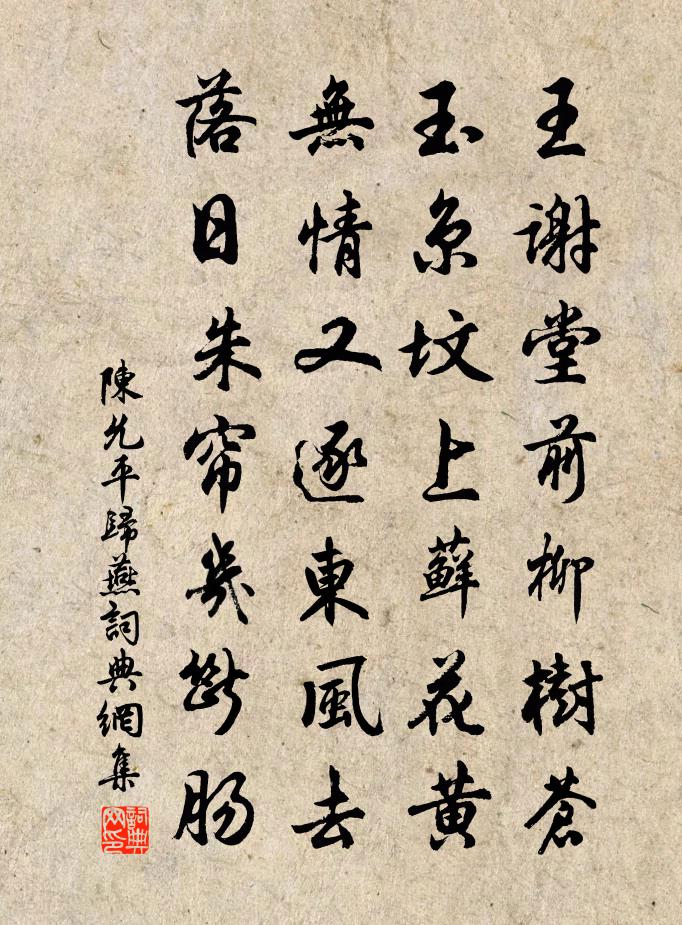 王謝堂前柳樹蒼
玉京坟上蘚花黄
無情又逐東風去
落日朱帘幾斷腸
陳允平歸燕詞典網集
詞典
网印